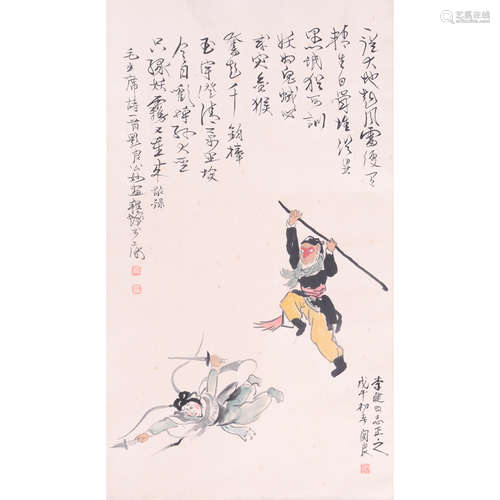 一從大地起風雷便有
精生白骨堆僧是
愚氓猶可訓
妖為鬼蜮必
成災金猴
奮起千鈞棒
玉宇澄清萬里埃
今日歡呼孫大聖
只緣妖霧又重來 敬錄
毛主席詩一首 良公妙畫
李健同志正之
戊午初春關良